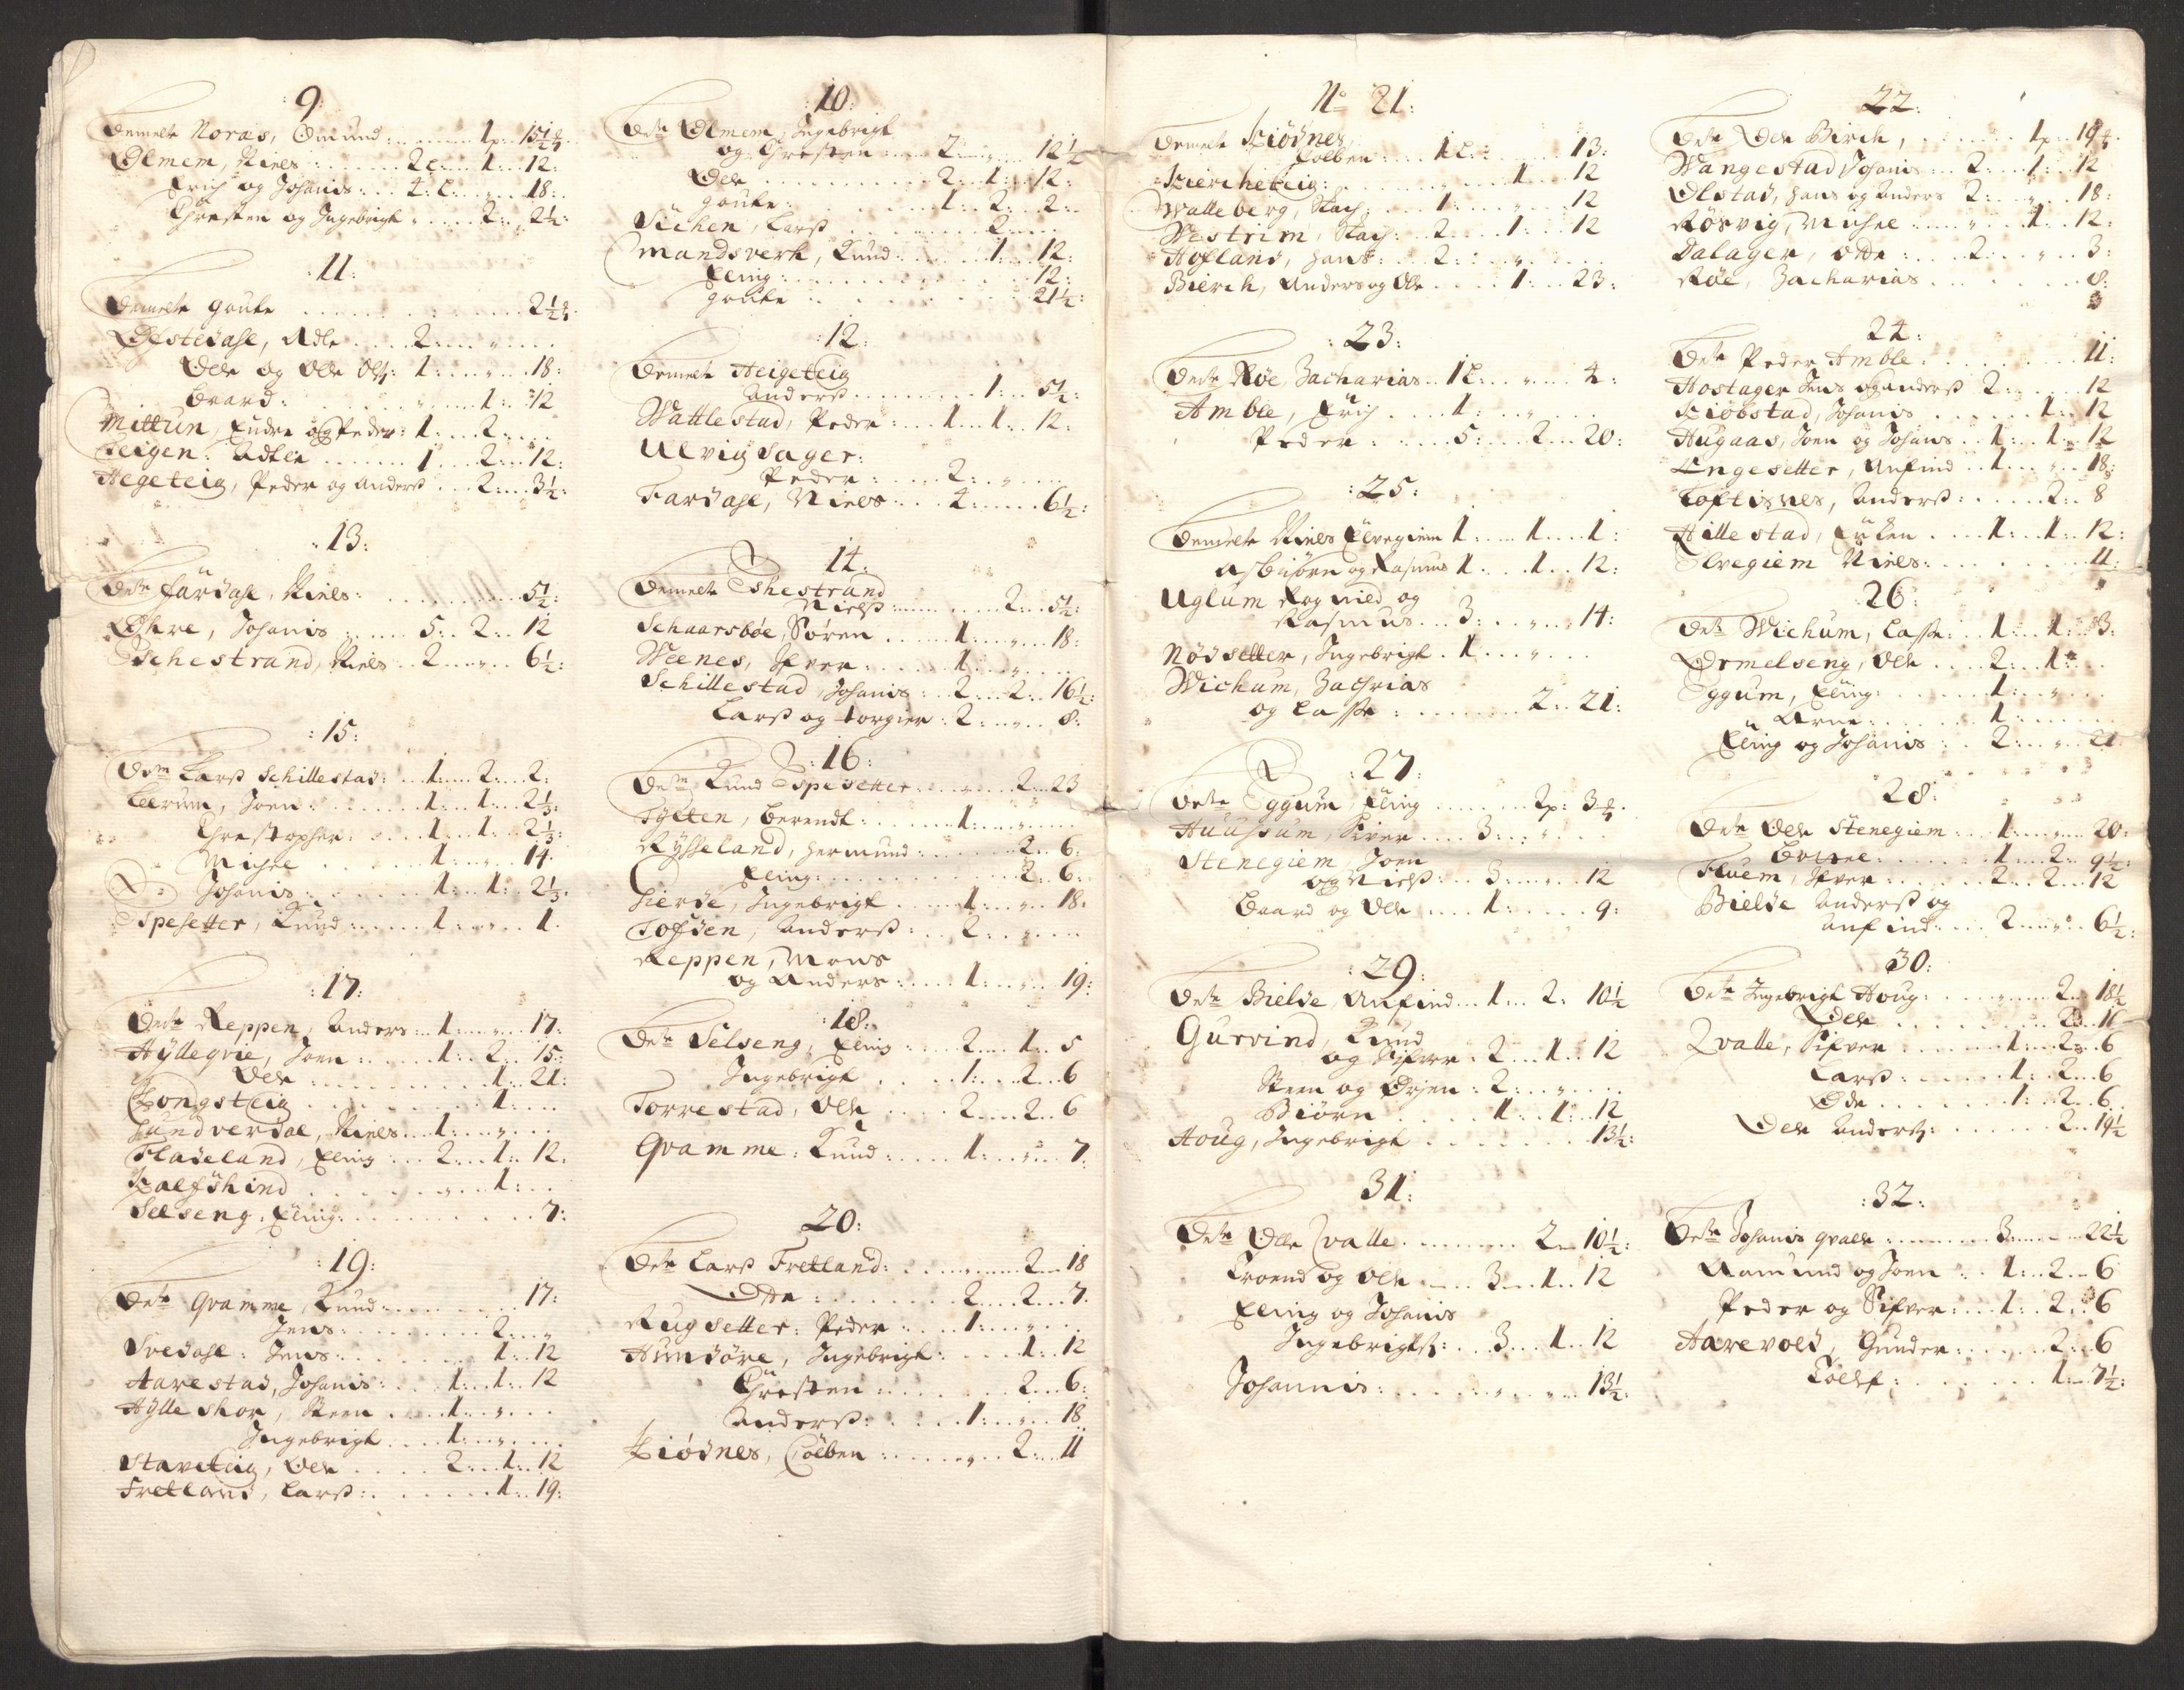 :9:
bemelte Noras, Omund: 1p: 15½
Ølmem, Niels: 2 L: 1: 12:
Erich og Johanis: 4: L: " 18:
Chresten og Ingebrigt " 2: 2½:
:11:
bemelte Goute 2½
Ofstedahl, Adle 2: "
Ole og Ole Ols: 1: " 18:
Baard: " 1: 12
Mittun, Endre og Peder: 1: 2:
Leigen: Adtle 1: 2: 12:
Hegeteig, Peder og Anders 2: 3½:
:13:
bete Fardahl, Niels: 5½:
Øhre, Johanis 5: 2: 12
Eschestrand, Niels 2: " 6½:
:15:
bete Lars Schillestad: 1: 2: 2:
Leerum, Joen: 1: 1: 2⅓:
Chrestopher: 1: 1: 2⅓:
Michel 1: " 14:
Johanis: 1: 1: 2⅓:
Espesetter, Knud 1: " 1:
:17:
bete Reppen, Anders 1: " 17:
Hyllegrie, Joen 1: 2: 15:
Ole 1: 21:
Kongsteig 1:
Sundverdal, Niels 1: "
Fladeland, Elling 2: 1: 12:
Kalfskind " 1:
Selseng, Elling: 7:
:19:
bete Qvamme Knud: 17:
Jens: 2: "
Svedahl: Jens: 1: 12
Aarestad, Johanis: 1: 1: 12
Hylleskor, Steen 1: "
Ingebrigt 1: "
Stavteig, Ole 2: 1: 12
Fretland, Lars: 1: 19:
:10:
bete Ølmem, Ingebrigt
og Chresten 2: " 12½
Ole 2: 1: 12:
Goute: 1: 2: 2:
Sichen, Lars 2:
Mandsverk, Knud 1: 12:
Elling: 12:
Goute 21½:
:12:
bemelte Heigeteig
Anders 1: 5½:
Wattlestad, Peder 1: 1: 12:
Ulvigsager:
Peder: 2: "
Fardahl, Niels 4: 6½:
14:
bemelte Eschestrand
Niels 2: 5½:
Schaarsbøe, Søren 1: " 18:
Weenes, Ifver: 1: "
Schillestad, Johanis: 2: 2: 16½:
Lars og Torgier: 2: " 8:
:16:
bete Knud Espesetter " 2: 23
Tylten, Berendt: 1: "
Rysseland, Hermund 2: 6:
Elling: 2: 6:
Lierde, Ingebrigt 1: " 18:
Tofden, Anders 2: "
Reppen, Mons
og Anders: 1: " 19:
:18:
bete Selseng, Elling 2: 1: 5
Ingebrigt 1: 2: 6
Torrestad, Ole 2: 2: 6
Qvamme: Knud: 1: " 7:
20:
bete Lars Fretland: " 2: 18
Otte 2: 2: 7:
Rugsetter: Peder 1: "
Hundøre, Ingebrigt: 1: 12
Chresten: 2: 6:
Anders: 1: " 18
Kiødnes, Colben: " 2: 11
No 21:
bemelte Kiødnes
Colben: 1 L: " 13:
Kiercheteig: 1: 12
Walleberg, Stach: 1: " 12
Westrim, Stach: 2: 1: 12
Hofland, Hans: 2: "
Bierch, Anders og Ole 1: 23:
:23:
bete Røe, Zacharias 1 L: " 4:
Amble, Erich 1: "
Peder: 5: 2: 20:
:25:
bemelte Niels Elvegiem 1: 1: 1:
Asbiørn og Rasmus 1: 1: 12:
Uglum Rognild og
Rasmus 3: " 14:
Nødsetter, Ingebrigt 1: "
Wichum, Zachrias
og Lasse: 2: 21:
:27:
bete Eggum, Elling 2p: 3
Huusum, Siver 3: "
Stenegiem, Joen
og Niels: 3: " 12
Baard og Ole 1: 9:
:29:
bete Bielde, Anfind 1: 2: 10½
Gurvind, Knud
og Sifver: 2: 1: 12
Steen og Ørjen: 2: "
Biørn 1: 1: 12
Houg, Ingebrigt 13½:
31:
bete Olle Qvalle 2: 10½:
Troend og Ole 3: 1: 12
Elling og Johanis
Ingebrigts: 3: 1: 12
Johannis: " 13½:
22:
bete Ole Birch, 1p: 19
Wangestad Johanis 2: 1: 12
Ølstad, Hans og Anders 2: " 18:
Røsvig, Michel " 1: 12:
Dalager, Otte 2: " 3:
Røe, Zacharias 8:
24:
bete Peder Amble 11:
Hostager Jens og Anders 2: 12
Kiøbstad, Johanis 1: 12
Hugaas, Joen og Johans 1: 1: 12
Engesetter, Anfind 1: " 18:
Loftisnes, Anders: 2: 8
Hillestad, Enken 1: 1: 12:
Elvegiem Niels: 11:
26:
bete Wichum, Lasse: 1: 1: 3:
Ormelseng, Ole 2: 1:
Eggum, Elling: 1: "
Arne: 1:
Elling og Johanis 2: " 21
28:
bete Ole Stenegiem 1: " 20:
Botne: 1: 2: 9½:
Fluem, Ifver: 2: 2: 12
Bielde Anders og
Anfind: 2: " 6½:
30:
bete Ingebrigt Houg: " 2: 18½
Ole 2: 10
Qvalle, Sifver 1: 2: 6
Lars: 1: 2: 6
Ode 1: 2: 6
Ole Anders: 2: 19½
:32:
bete Johanis Qvale 3: 22½
Aamund og Joen 1: 2: 6
Peder og Sifver: 1: 2: 6
Aarevold, Gunder: 2: 6
Tollef: 1: 7½: